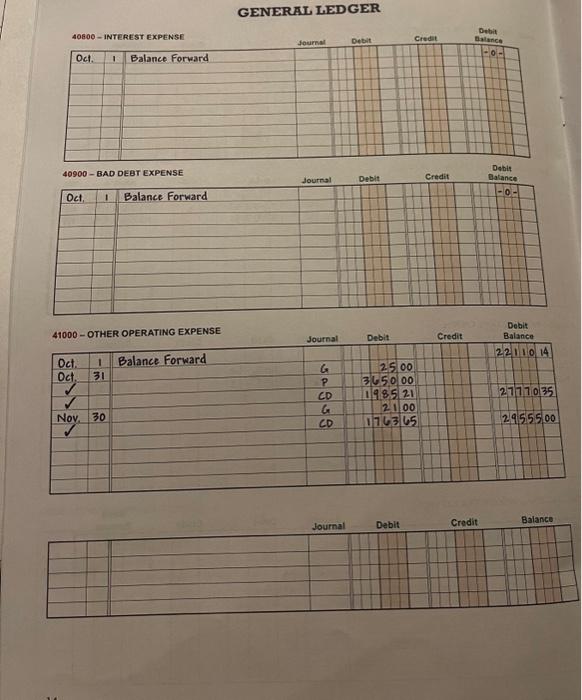 GENERAL LEDGER
40800 - INTEREST EXPENSE Journal Debit Credit Debit Balance
Oct. 1 Balance Forward -0-
40900 - BAD DEBT EXPENSE Journal Debit Credit Debit Balance
Oct. 1 Balance Forward -0-
41000 - OTHER OPERATING EXPENSE Journal Debit Credit Debit Balance
Oct. 1 Balance Forward 22110 14
Oct. 31 G 25 00
✓ P 3650 00
✓ CD 1985 21 27770 35
Nov. 30 G 21 00
✓ CD 1763 65 29555 00
Journal Debit Credit Balance